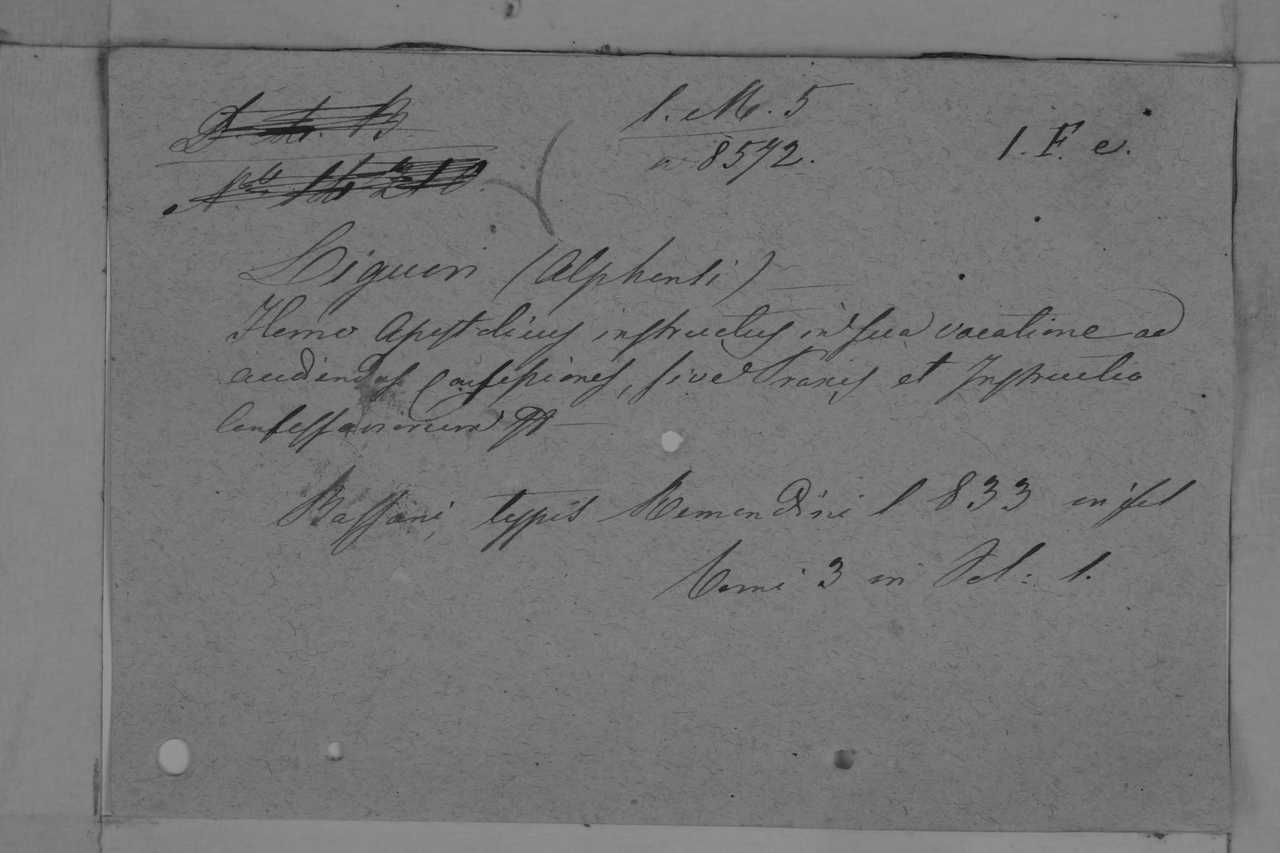 1. M. 5
n 8572.
1. F. e.
Liguori (Alphonsi)
Homo Apostolicus instructus in sua vocatione ad
audiendas Confessiones, sive Praxis et Instructio
Confessariorum
Bassani, typis Remondini 1833 in fol
Tomi 3 in Vol: 1.